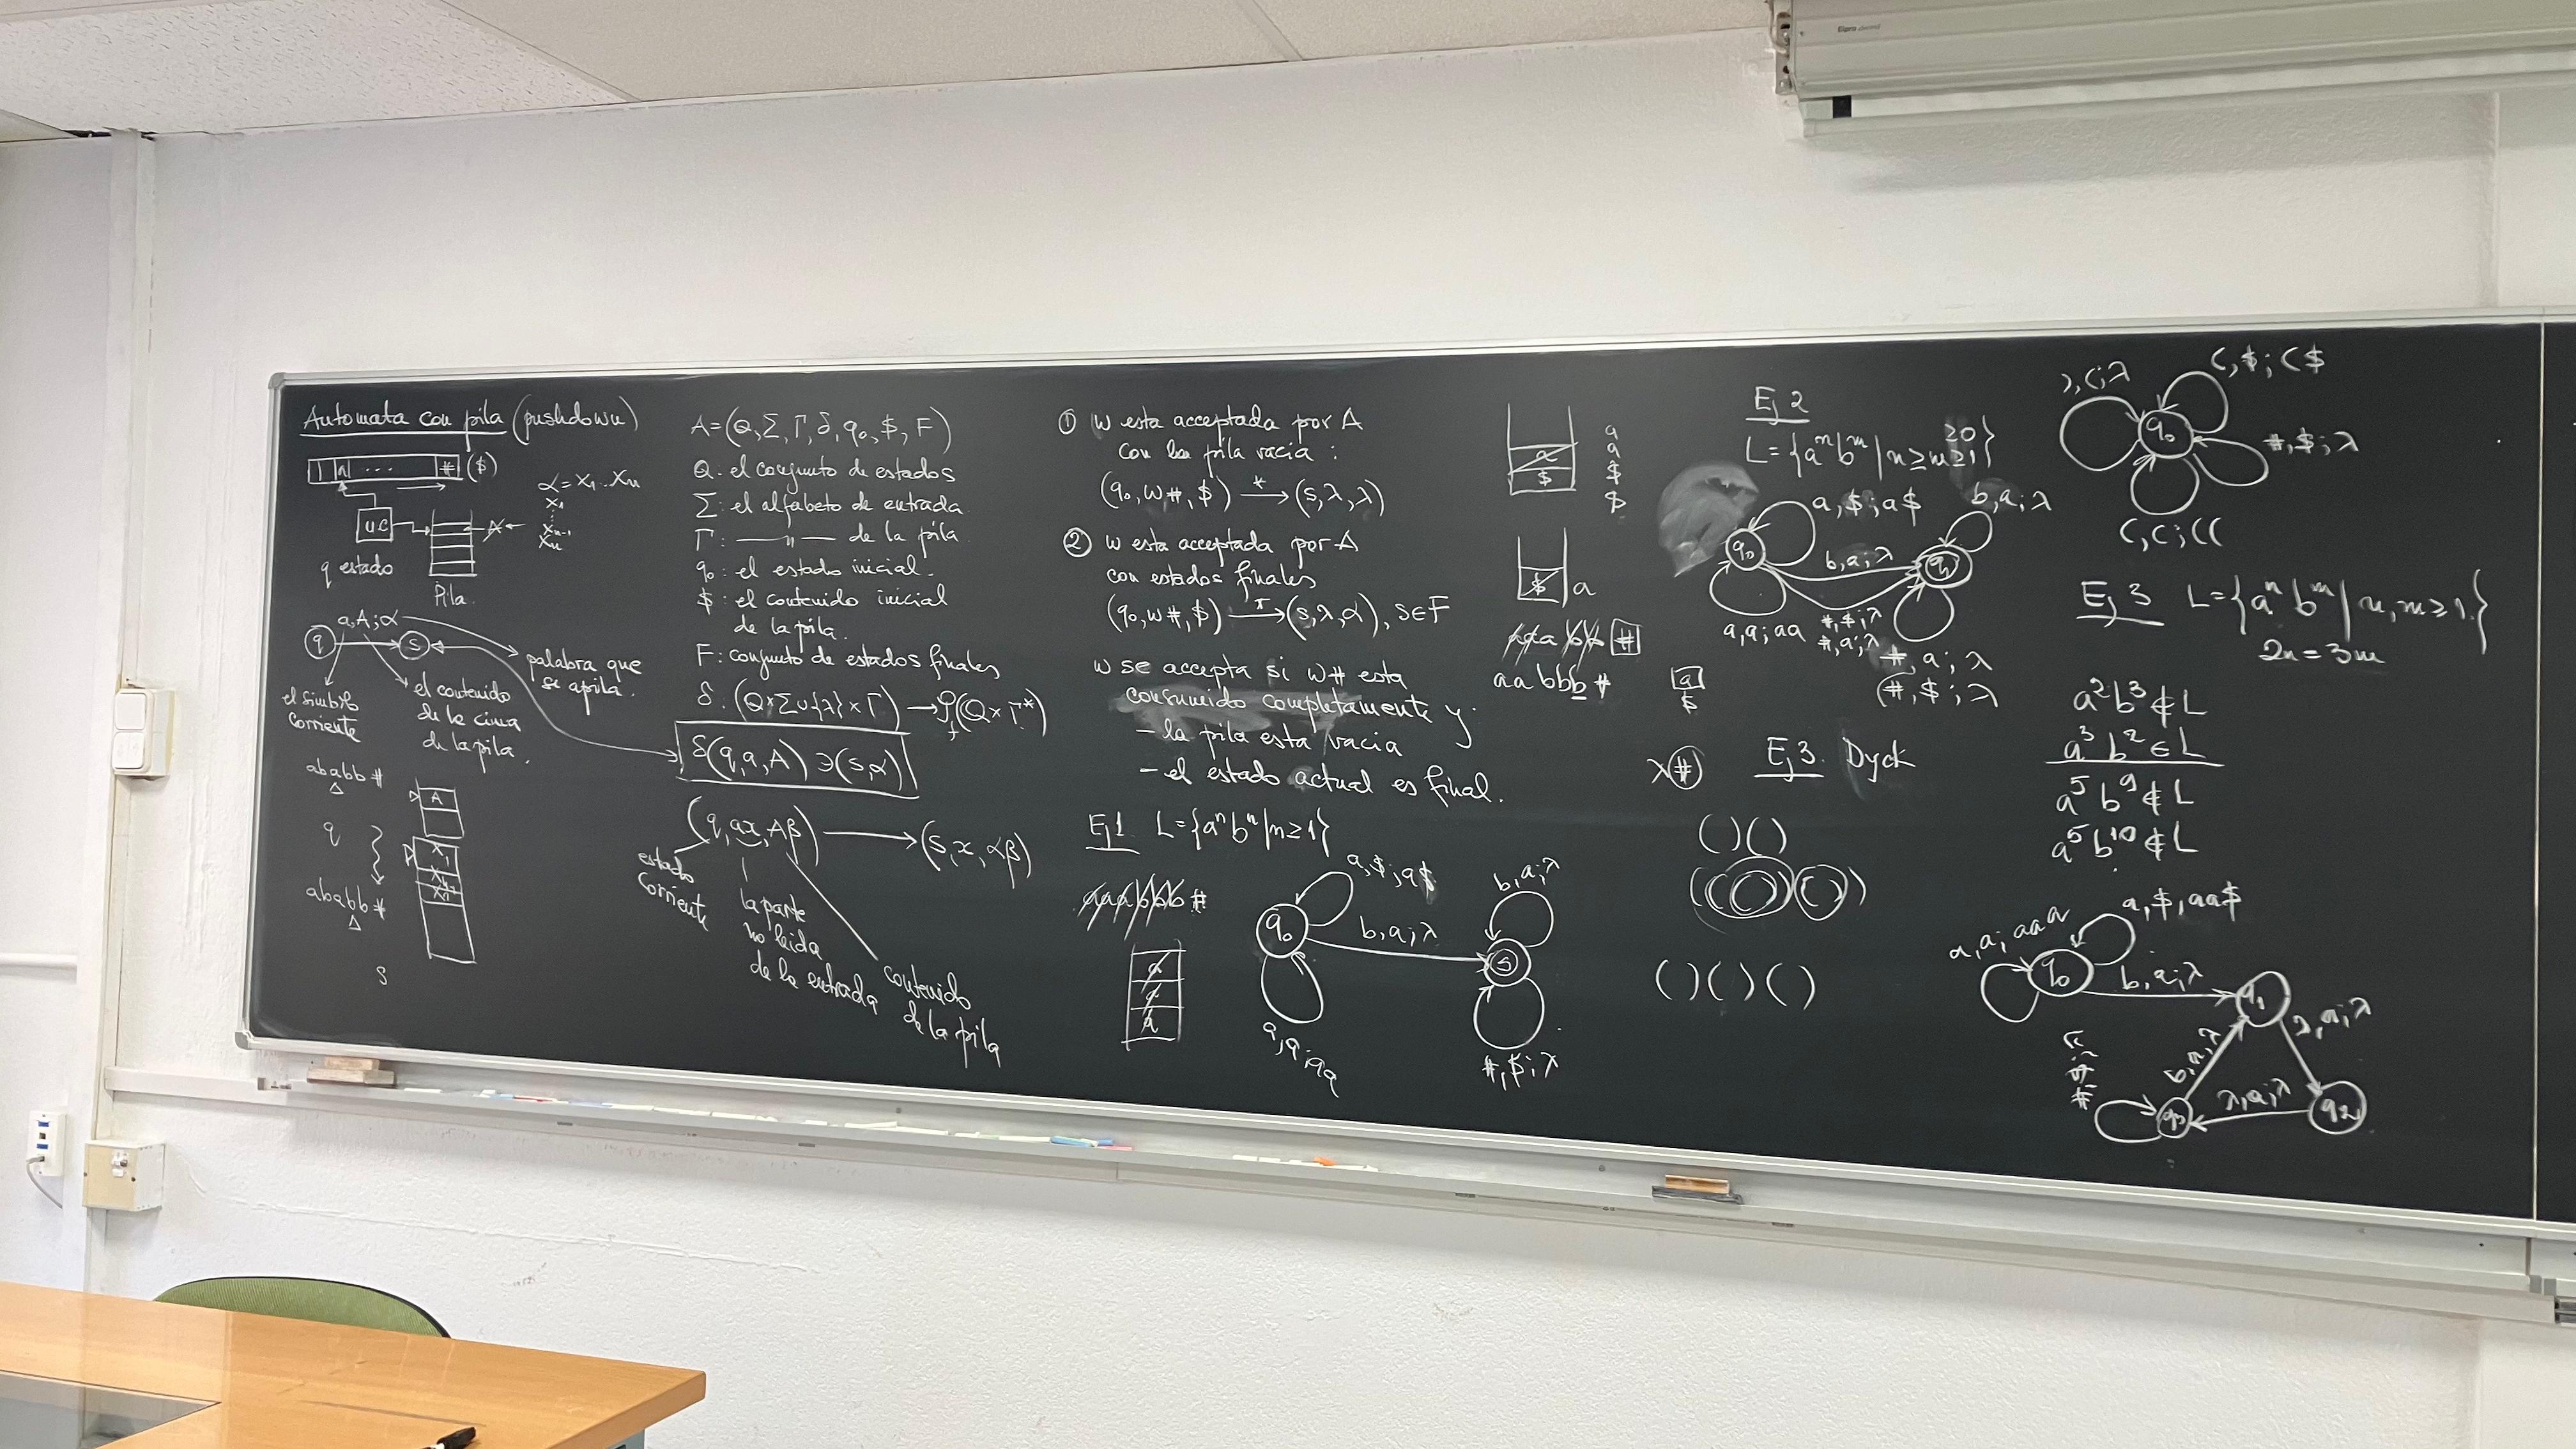 Automata con pila (pushdown)
a ... # ($)
α = X1 .. Xn
X1
Xn-1
Xn
UC
A
q estado
Pila
a, A; α
q
s
palabra que
se apila.
el simbolo
corriente
el contenido
de la cima
de la pila.
ababb #
A
q
X1
Xn
ababb #
s
A = (Q, Σ, Γ, δ, q0, $, F)
Q: el conjunto de estados
Σ: el alfabeto de entrada
Γ: —— " —— de la pila
q0: el estado inicial.
$: el contenido inicial
de la pila.
F: conjunto de estados finales
δ: (Q × Σ ∪ {λ} × Γ) → 𝒫f (Q × Γ*)
δ(q, a, A) ∋ (s, α)
(q, ax, Aβ) → (s, x, αβ)
estado
corriente
la parte
no leida
de la entrada
contenido
de la pila
① w esta acceptada por A
con la pila vacia :
(q0, w#, $) →* (s, λ, λ)
② w esta acceptada por A
con estados finales
(q0, w#, $) →* (s, λ, α), s ∈ F
w se accepta si w# esta
consumido completamente y:
- la pila esta vacia
- el estado actual es final.
Ej 1. L = {a^n b^n | n ≥ 1}
aaabbb #
a
a
a
q0
a, $; a$
a, a; aa
b, a; λ
s
b, a; λ
#, $; λ
a
$
a
a
$
$
$
a
aabbb #
a
$
λ #
Ej 2
L = {a^n b^m | n ≥ m ≥ 1}
≥0
q0
a, $; a$
a, a; aa
b, a; λ
#, $; λ
#, a; λ
q1
b, a; λ
#, a; λ
(#, $; λ
Ej 3. Dyck
( ) ( )
( ( ( ) ) ( ) )
( ) ( ) ( )
), (; λ
(, $; ( $
q0
#, $; λ
(, (; ( (
Ej 3 L = {a^n b^m | n, m ≥ 1}
2n = 3m
a^2 b^3 ∉ L
a^3 b^2 ∈ L
a^5 b^9 ∉ L
a^5 b^10 ∉ L
a, a; aaa
a, $, aa$
q0
b, a; λ
q1
λ, a; λ
b, a; λ
#, $; λ
q3
λ, a; λ
q2